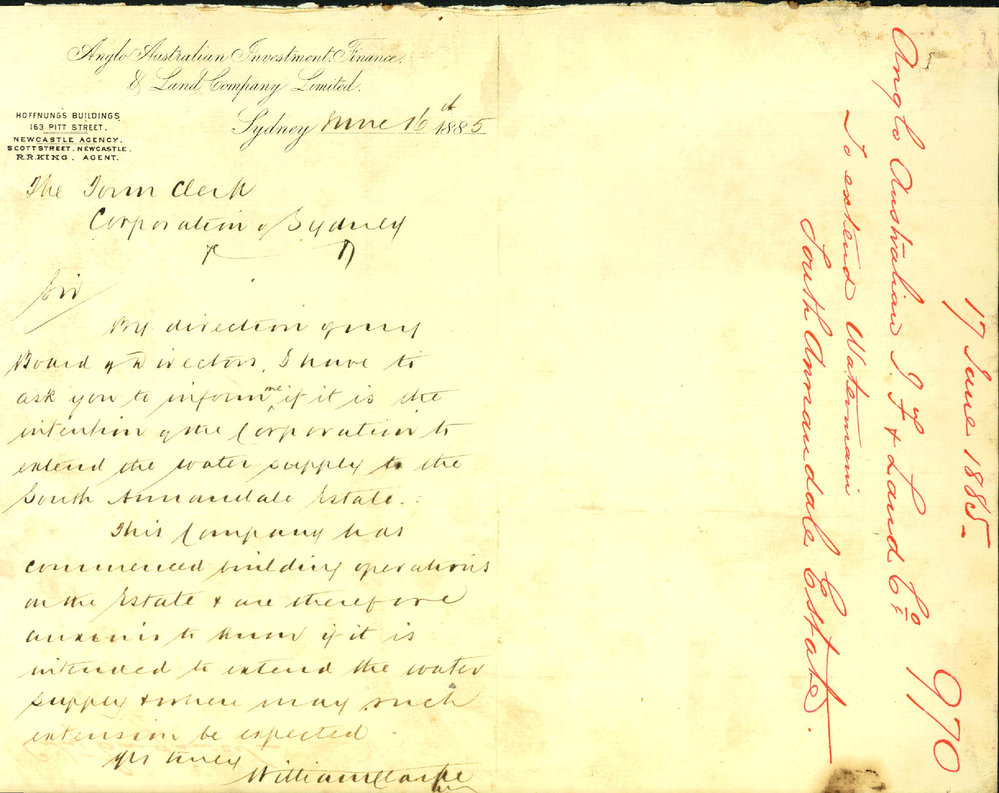 Anglo Australian Investment, Finance.
& Land Company Limited.
HOFFNUNG'S BUILDINGS
163 PITT STREET.
NEWCASTLE AGENCY.
SCOTT STREET. NEWCASTLE.
R.R.KING. AGENT.
Sydney June 16th 1885
The Town Clerk
Corporation of Sydney
Sir
By direction of my
Board of Directors, I have to
ask you to inform me if it is the
intention of the Corporation to
extend the water supply to the
South Annandale Estate.
This Company has
commenced building operations
on the Estate & are therefore
anxious to know if it is
intended to extend the water
supply & where may such
extension be expected
Yrs truly
William Clarke
17 June 1885 970
Anglo Australian I F & Land Co
To extend Watermain
South Annandale Estate.